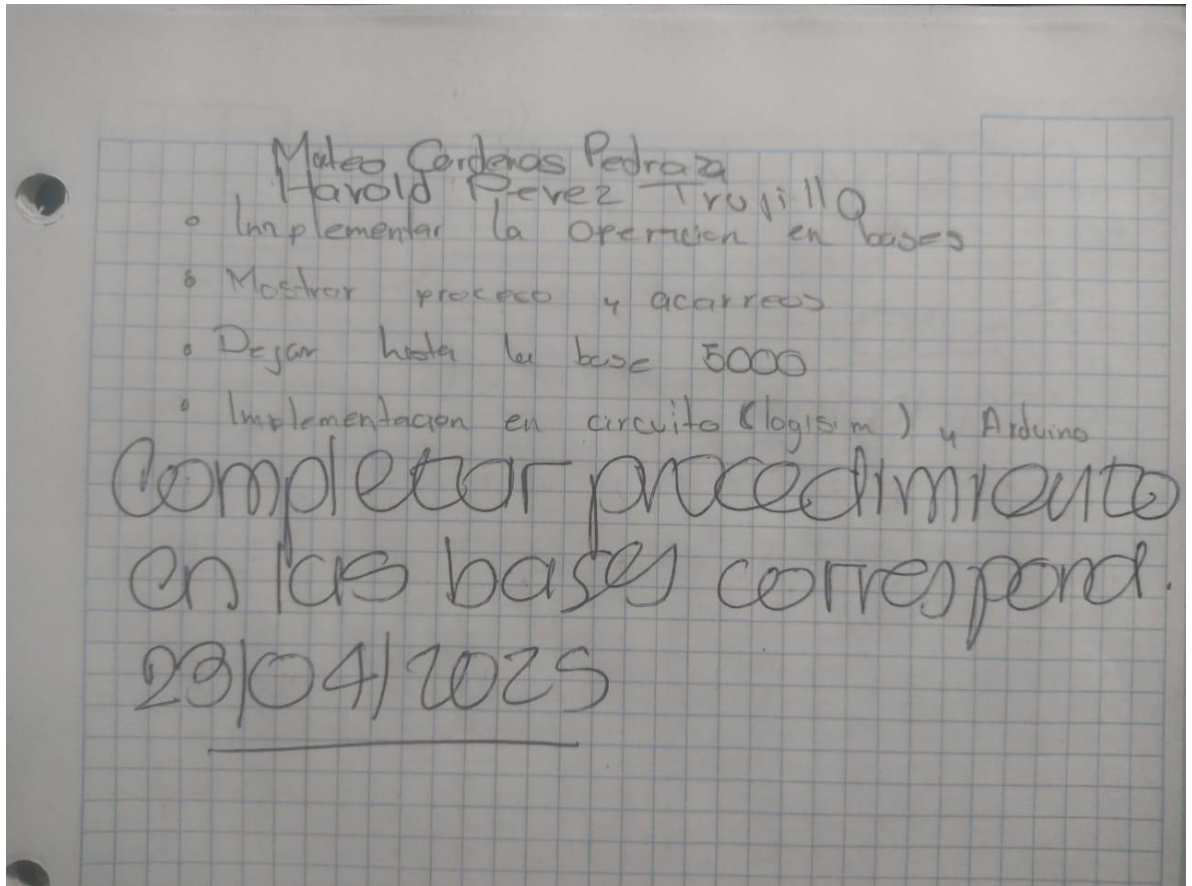 Mateo Cardenas Pedraza
Harold Perez Trujillo
• Implementar la Operacion en bases
• Mostrar proceso y acarreos
• Dejar hasta la base 5000
• Implementacion en circuito (logisim) y Arduino
Completar procedimiento
en las bases correspond.
23/04/2025